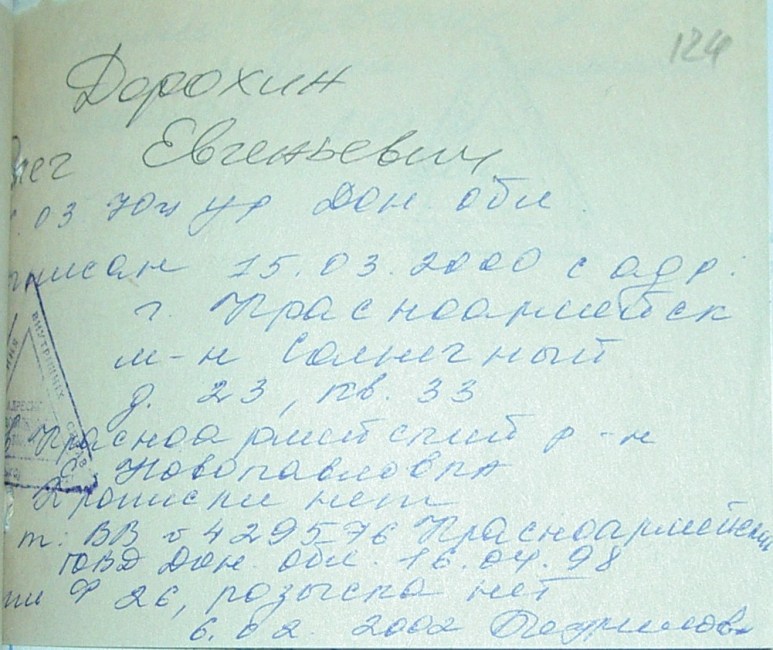 124
Дорохин
Олег Евгеньевич
.03 70 ур Дон. обл.
писан 15.03.2000 с адр:
г. Красноармейск
м-н Солнечный
д. 23, кв. 33
в Красноармейский р-н
с. Новопавловка
Прописки нет
т: ВВ № 429576 Красноармейский
ГОВД Дон. обл. 16.04.98
Ф 26, розыска нет
6.02.2002
ВНУТРЕННИХ